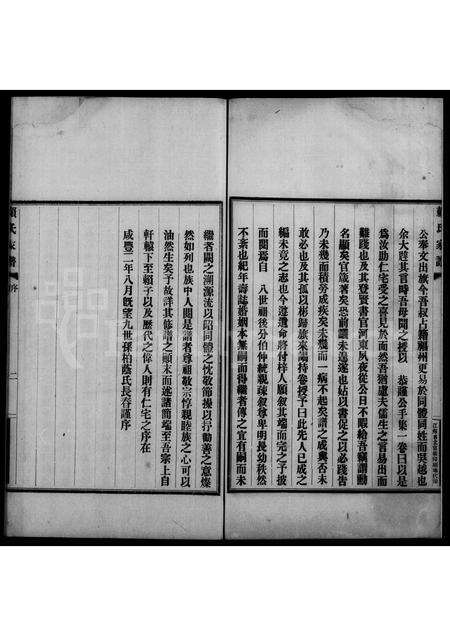 公奉文出族今吾叔占籍福州更易於同體同姓而吳越也
余大韙其言時吾母聞之趣以 恭謹公手集一卷曰以是
為汝助仁宅受之喜見於面然吾猶慮夫儒生之言易出而
難踐也及其登賢書官河東夙夜從公日不暇給吾竊謂勳
名顯矣官箴著矣恐前讀未遑遂也姑以書促之以必踐告
乃未幾而積勞成疾矣未幾而一病不起矣譜之成與否未
敢必也及其孤以彬歸旅來謁持卷授予曰此先人已成之
編未竟之志也今遵遺命將付梓人願敘其端而完之予披
而閱焉自 八世祖後分伯仲統親疎敘尊卑明長幼秩然
不紊也紀年壽誌婚姻本無嗣而得繼者傳之宜有嗣而未
繼者闕之溯源流以昭同體之忱敬節操以寓勸善之意燦
然如列也族中人閱是譜者尊祖敬宗惇親睦族之心可以
油然生矣予故詳其修譜之顛末而述諸簡端至吾宗上自
軒轅下至賴子以及歷代之偉人則有仁宅之序在
咸豐二年八月既望九世孫柏蔭氏長春謹序
賴氏家譜
序
二